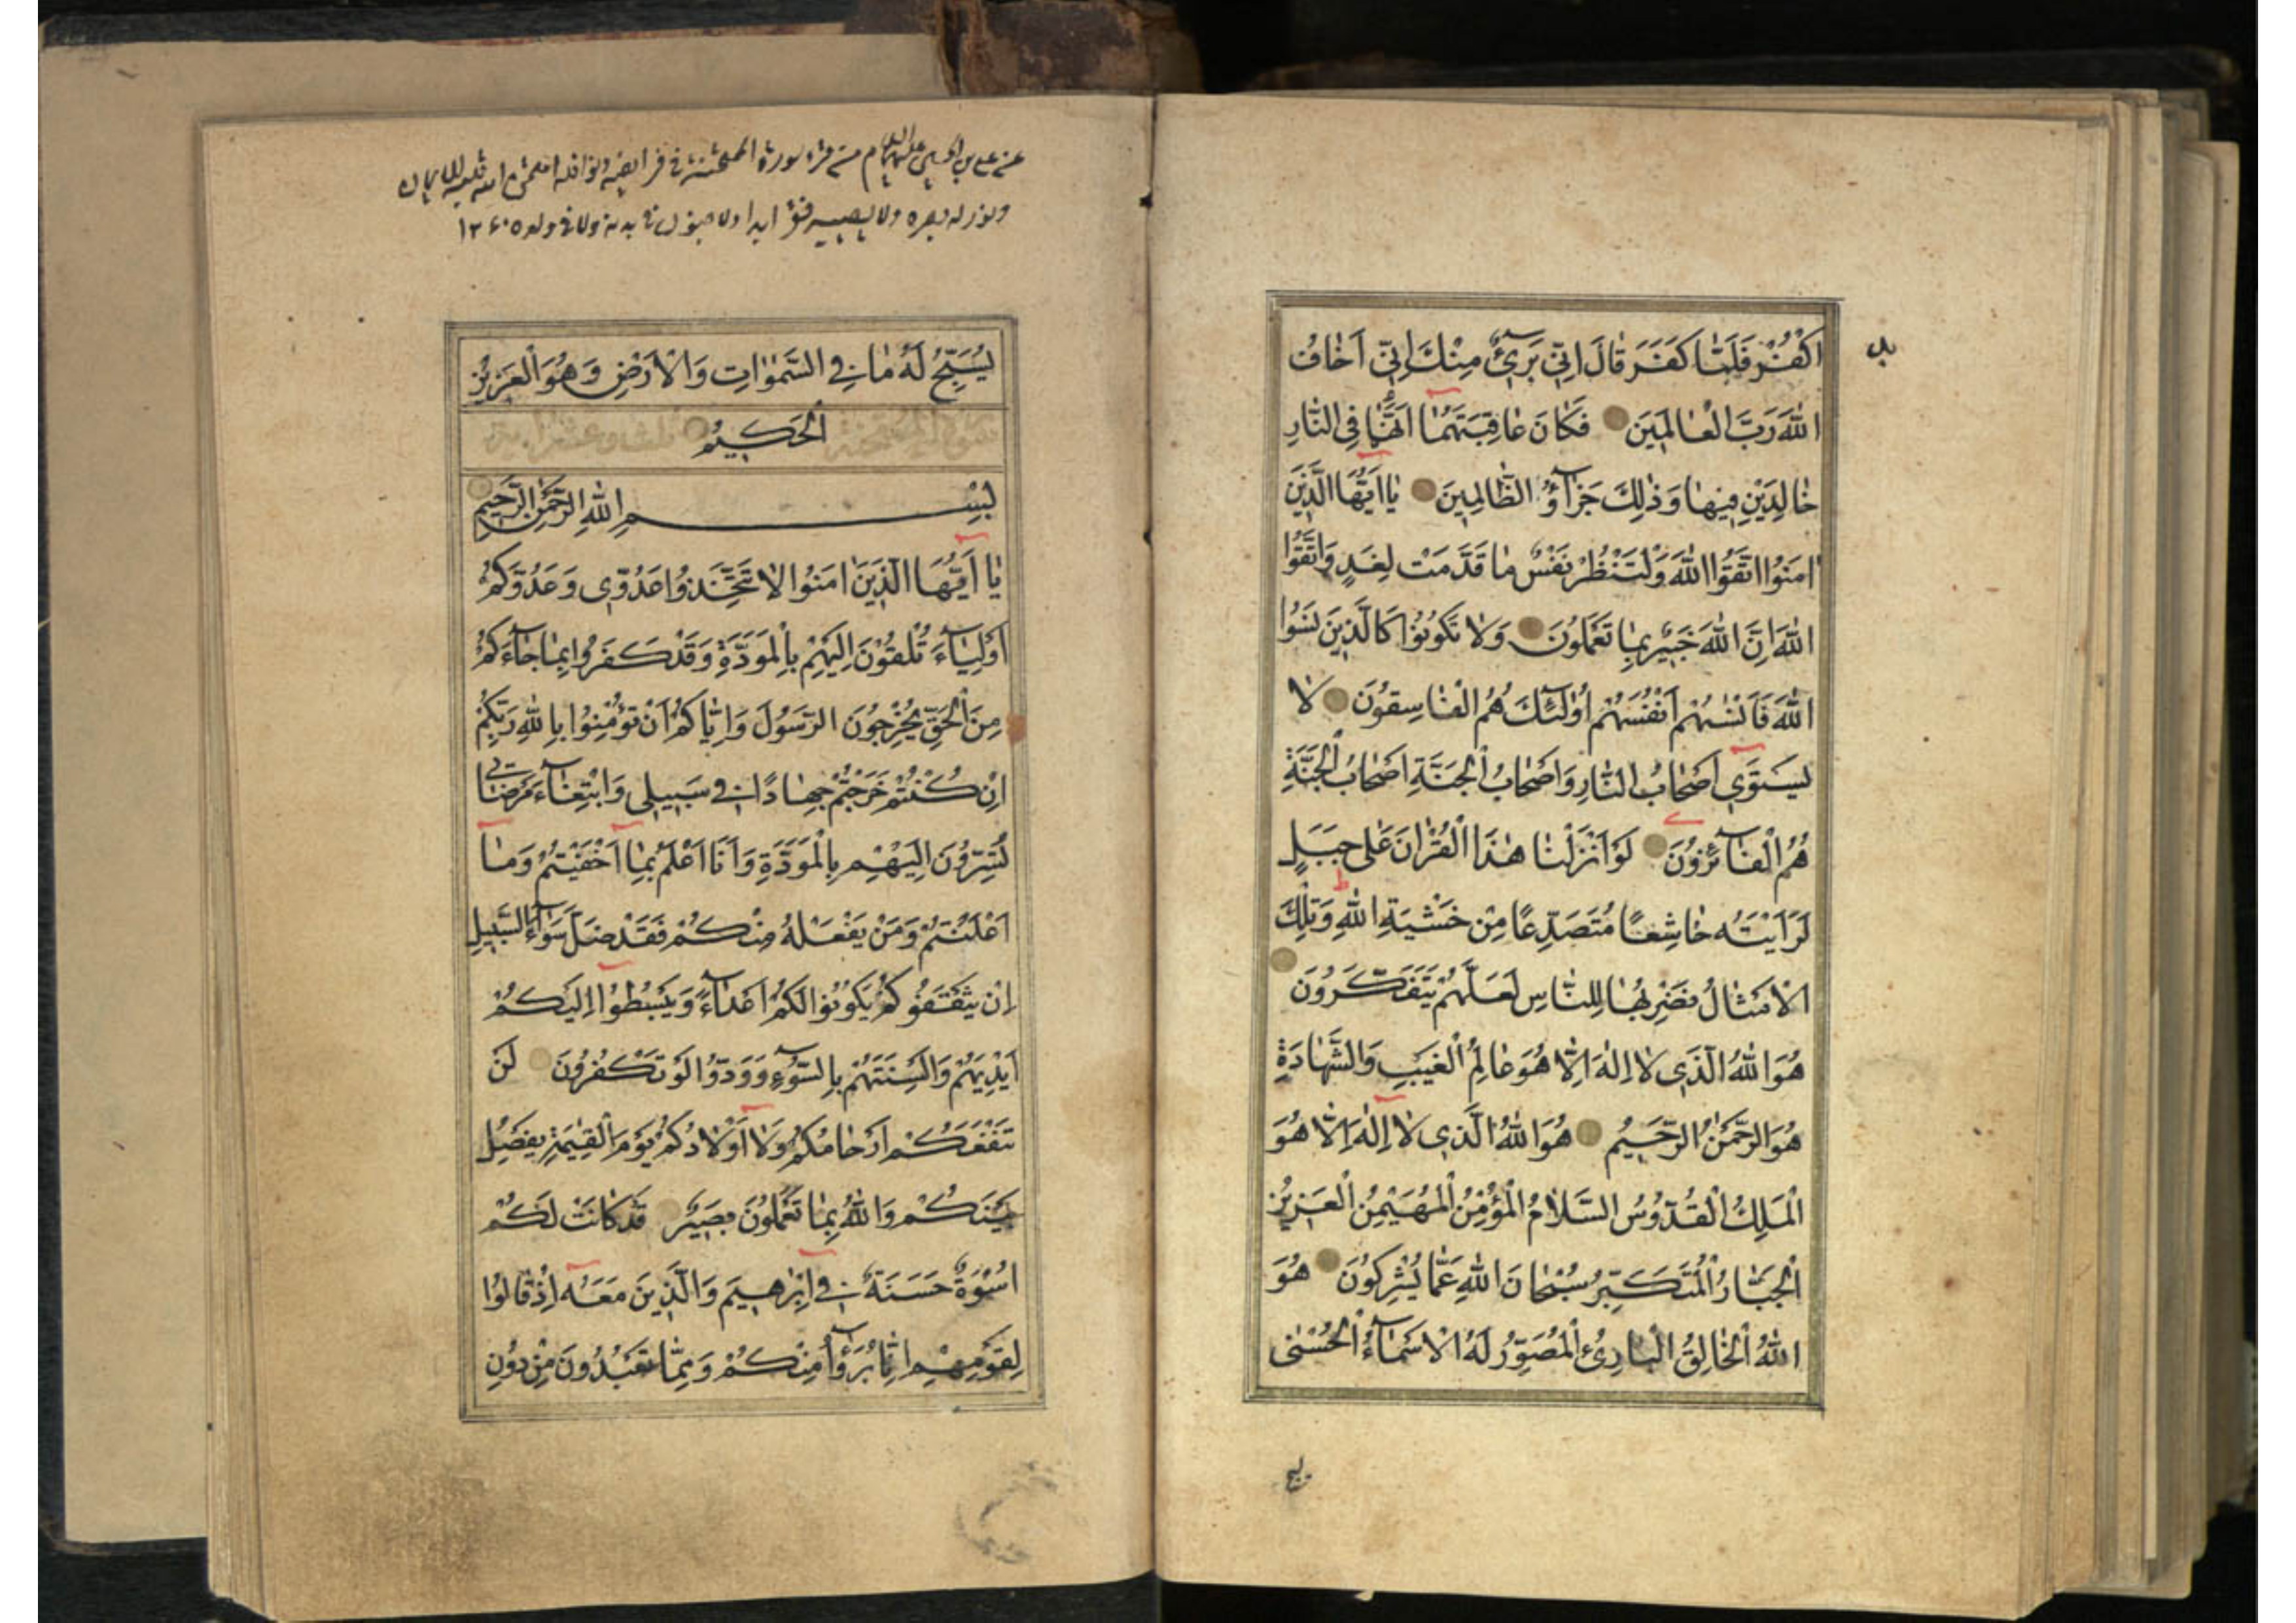 اكْفُرْ فَلَمّٰا كَفَرَ قٰالَ اِنّٖى بَرٖىٓءٌ مِنْكَ اِنّٖى اَخٰافُ
اللّٰهَ رَبَّ الْعٰالَمٖينَ فَكٰانَ عٰاقِبَتَهُمٰٓا اَنَّهُمٰا فِى النّٰارِ
خٰالِدَيْنِ فٖيهٰا وَذٰلِكَ جَزٰٓاؤُ الظّٰالِمٖينَ يٰٓا اَيُّهَا الَّذٖينَ
اٰمَنُوا اتَّقُوا اللّٰهَ وَلْتَنْظُرْ نَفْسٌ مٰا قَدَّمَتْ لِغَدٍ وَاتَّقُوا
اللّٰهَ اِنَّ اللّٰهَ خَبٖيرٌ بِمٰا تَعْمَلُونَ وَلٰا تَكُونُوا كَالَّذٖينَ نَسُوا
اللّٰهَ فَاَنْسٰىهُمْ اَنْفُسَهُمْ اُولٰٓئِكَ هُمُ الْفٰاسِقُونَ لٰا
يَسْتَوٖى اَصْحٰابُ النّٰارِ وَاَصْحٰابُ الْجَنَّةِ اَصْحٰابُ الْجَنَّةِ
هُمُ الْفٰٓائِزُونَ لَوْ اَنْزَلْنٰا هٰذَا الْقُرْاٰنَ عَلٰى جَبَلٍ
لَرَاَيْتَهُ خٰاشِعًا مُتَصَدِّعًا مِنْ خَشْيَةِ اللّٰهِ وَتِلْكَ
الْاَمْثٰالُ نَضْرِبُهٰا لِلنّٰاسِ لَعَلَّهُمْ يَتَفَكَّرُونَ
هُوَ اللّٰهُ الَّذٖى لٰا اِلٰهَ اِلّٰا هُوَ عٰالِمُ الْغَيْبِ وَالشَّهٰادَةِ
هُوَ الرَّحْمٰنُ الرَّحٖيمُ هُوَ اللّٰهُ الَّذٖى لٰٓا اِلٰهَ اِلّٰا هُوَ
الْمَلِكُ الْقُدُّوسُ السَّلٰامُ الْمُؤْمِنُ الْمُهَيْمِنُ الْعَزٖيزُ
الْجَبّٰارُ الْمُتَكَبِّرُ سُبْحٰانَ اللّٰهِ عَمّٰا يُشْرِكُونَ هُوَ
اللّٰهُ الْخٰالِقُ الْبٰارِئُ الْمُصَوِّرُ لَهُ الْاَسْمٰٓاءُ الْحُسْنٰى
من قرء سورة الممتحنة فى فرائضه ونوافله امتحن الله قلبه للايمان
ونور له بصره ولا يصيبه فقر ابدا ولا جنون فى بدنه ولا فى ولده
يُسَبِّحُ لَهُ مٰا فِى السَّمٰوٰاتِ وَالْاَرْضِ وَهُوَ الْعَزٖيزُ
الْحَكٖيمُ
بِسْمِ اللّٰهِ الرَّحْمٰنِ الرَّحٖيمِ
يٰٓا اَيُّهَا الَّذٖينَ اٰمَنُوا لٰا تَتَّخِذُوا عَدُوّٖى وَعَدُوَّكُمْ
اَوْلِيٰٓاءَ تُلْقُونَ اِلَيْهِمْ بِالْمَوَدَّةِ وَقَدْ كَفَرُوا بِمٰا جٰٓاءَكُمْ
مِنَ الْحَقِّ يُخْرِجُونَ الرَّسُولَ وَاِيّٰاكُمْ اَنْ تُؤْمِنُوا بِاللّٰهِ رَبِّكُمْ
اِنْ كُنْتُمْ خَرَجْتُمْ جِهٰادًا فٖى سَبٖيلٖى وَابْتِغٰٓاءَ مَرْضٰاتٖى
تُسِرُّونَ اِلَيْهِمْ بِالْمَوَدَّةِ وَاَنَا اَعْلَمُ بِمٰٓا اَخْفَيْتُمْ وَمٰٓا
اَعْلَنْتُمْ وَمَنْ يَفْعَلْهُ مِنْكُمْ فَقَدْ ضَلَّ سَوٰٓاءَ السَّبٖيلِ
اِنْ يَثْقَفُوكُمْ يَكُونُوا لَكُمْ اَعْدٰٓاءً وَيَبْسُطُوٓا اِلَيْكُمْ
اَيْدِيَهُمْ وَاَلْسِنَتَهُمْ بِالسُّوٓءِ وَوَدُّوا لَوْ تَكْفُرُونَ لَنْ
تَنْفَعَكُمْ اَرْحٰامُكُمْ وَلٰٓا اَوْلٰادُكُمْ يَوْمَ الْقِيٰمَةِ يَفْصِلُ
بَيْنَكُمْ وَاللّٰهُ بِمٰا تَعْمَلُونَ بَصٖيرٌ قَدْ كٰانَتْ لَكُمْ
اُسْوَةٌ حَسَنَةٌ فٖٓى اِبْرٰهٖيمَ وَالَّذٖينَ مَعَهُ اِذْ قٰالُوا
لِقَوْمِهِمْ اِنّٰا بُرَءٰٓؤُا مِنْكُمْ وَمِمّٰا تَعْبُدُونَ مِنْ دُونِ